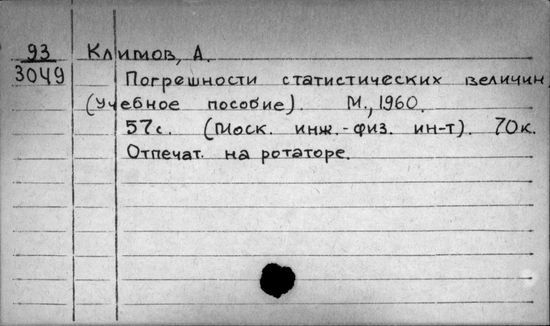 93
3049
Климов, А.
Погрешности статистических величин.
(Учебное пособие). М., 1960.
57с. (Моск. инж.-физ. ин-т). 70к.
Отпечат. на ротаторе.